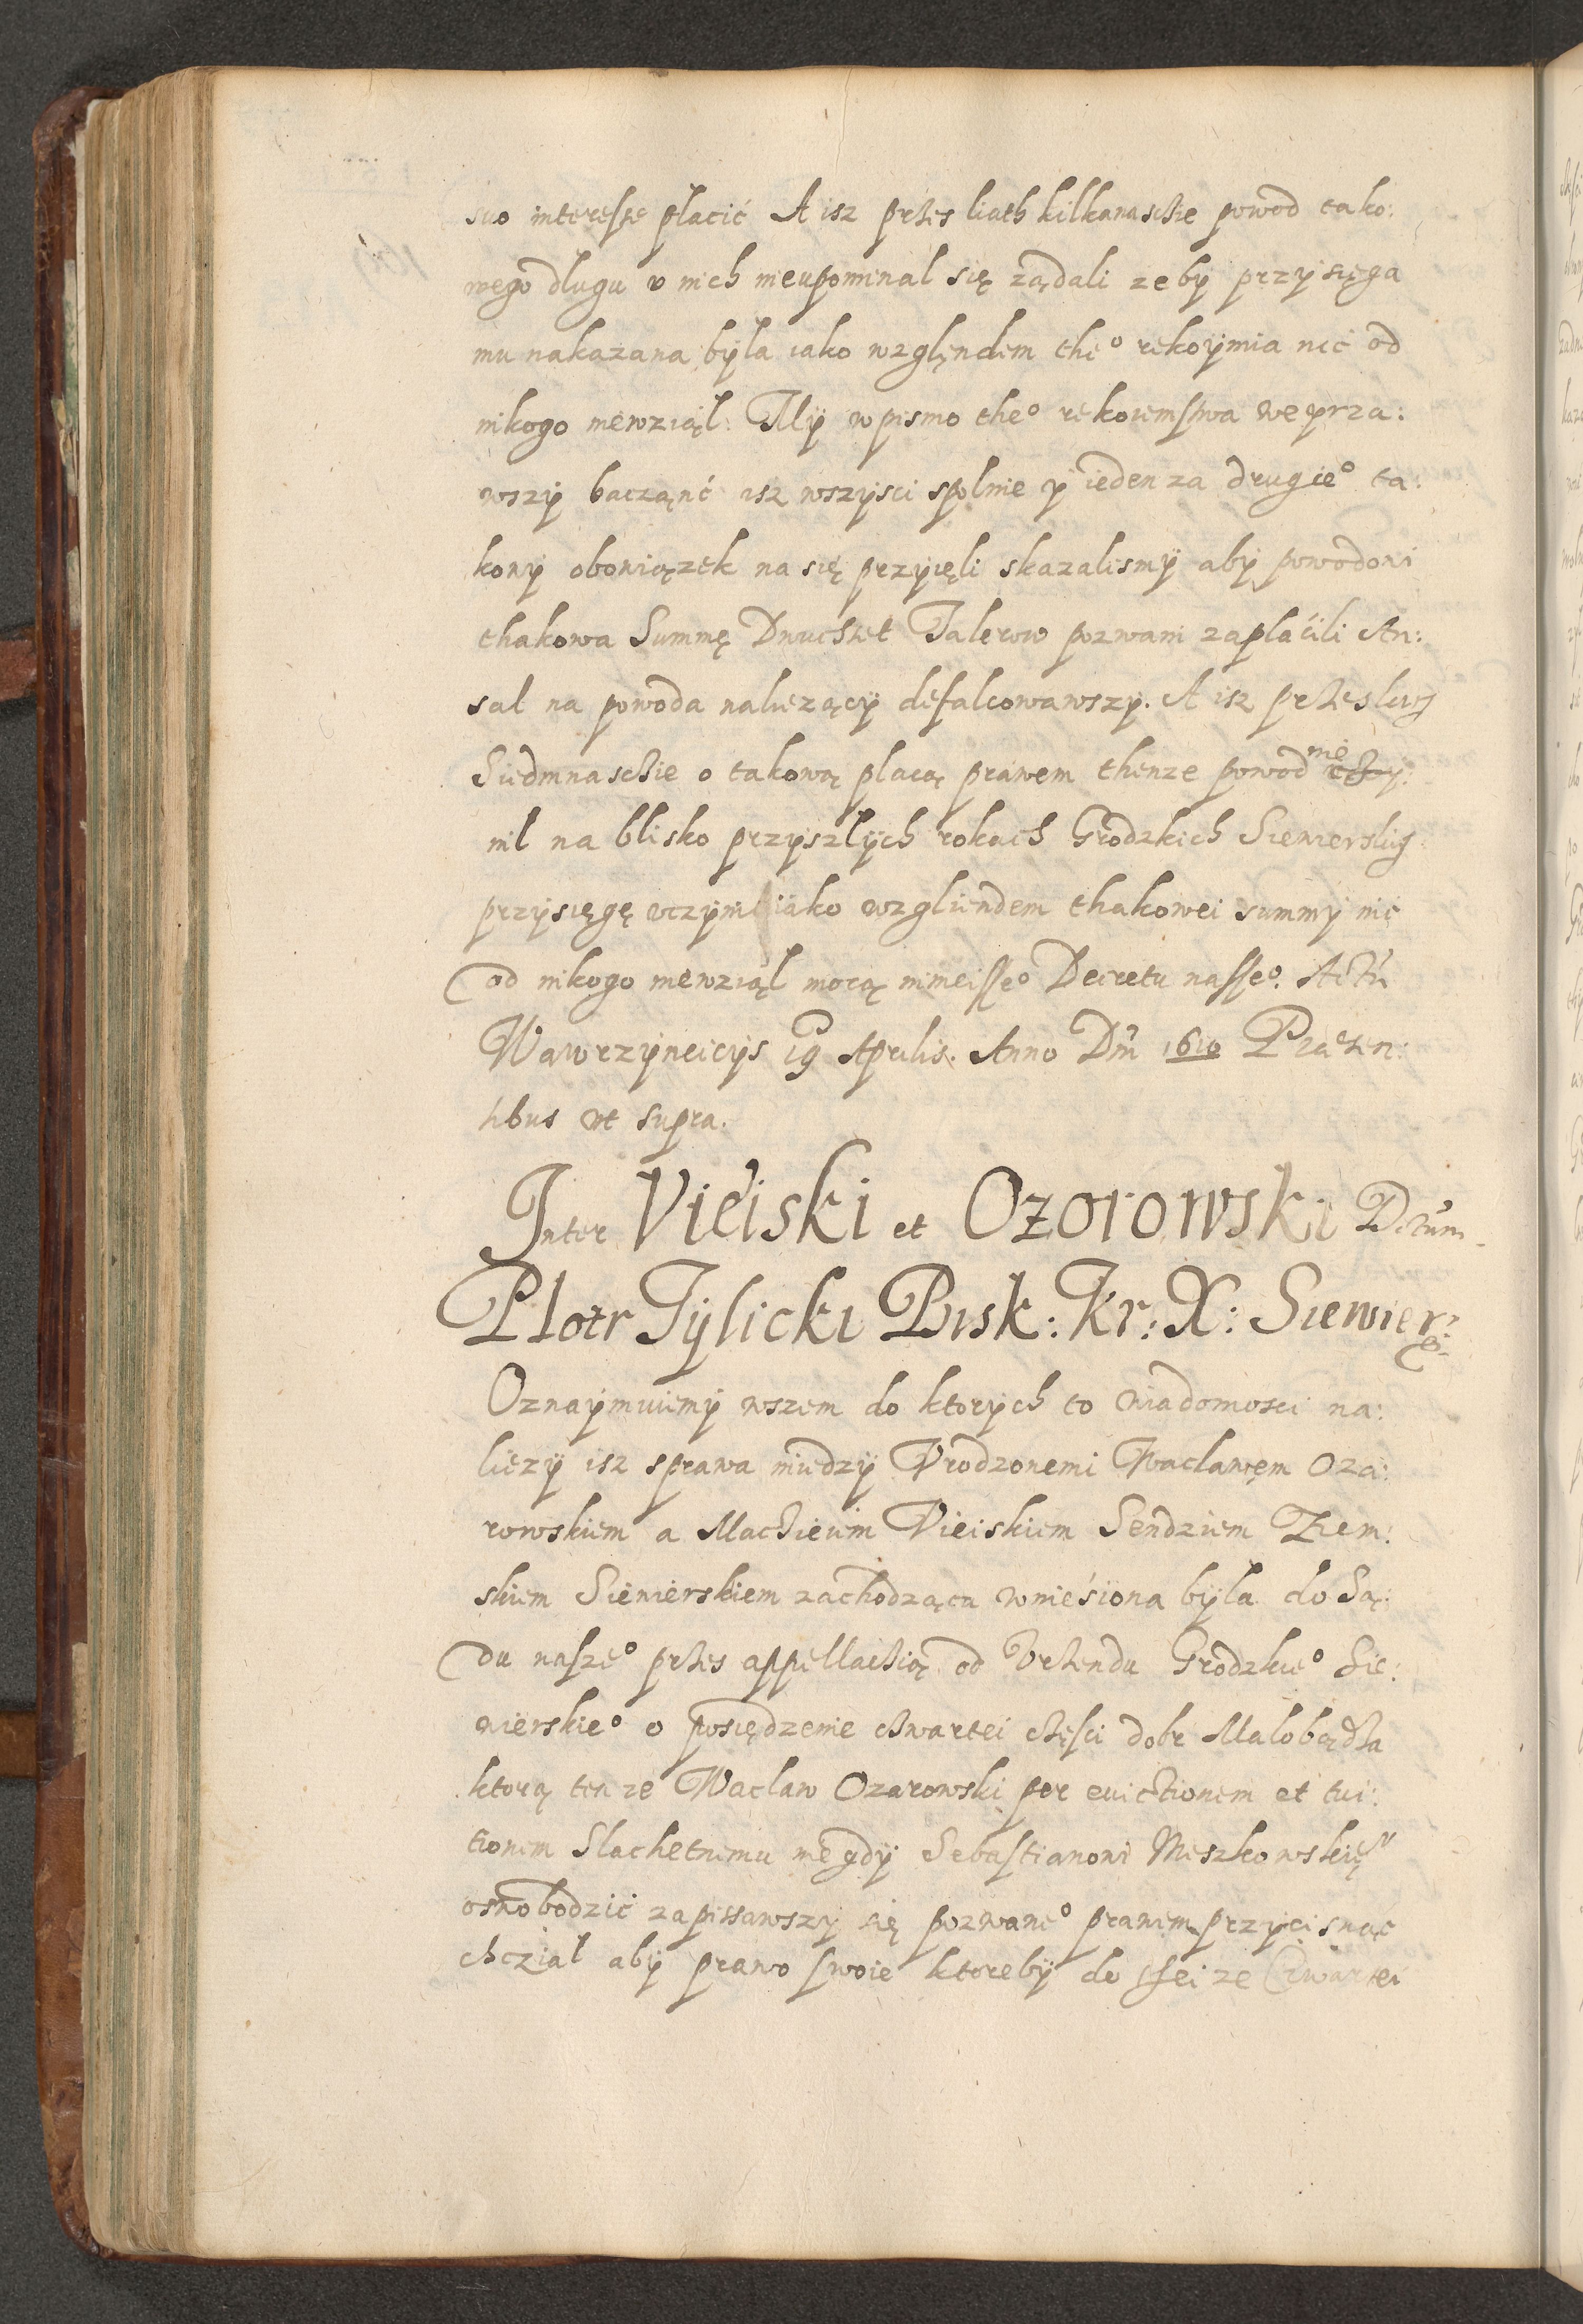 suo interesse płacić A isz przes liath kilkanascie powod tako:
wego dlugu v nich nieupominal się ządali zeby przysięga
mu nakazana była iako wzglęndem the° rekoymia nic od
nikogo niewziął: My w pismo the° rekoiemstwa weyrza:
wszy bacząnć isz wszysci spolnie y ieden za drugie° ta:
kowy obowiązek na się przyięli skazalismy aby powodowi
thakowa Summę Dwuchset Talerow pozwani zapłacili An:
sal na powoda naliezący defalcowawszy. A isz przes
Siedmnascie o takową płacą prawem thenze powod nie czy:
nił na blisko przyszłych rokach Grodzkich
przysięgę vczynił iako wzgliendem thakowei summy nic
od nikogo niewziął mocą ninieisse° Decretu nasse°. Actū
Wawrzyneicys 19 Aprilis. Anno Dni 1610 Praesen:
tibus vt supra.
Inter Vieiski et Ozorowski Decretum
Piotr Tylicki Bisk: Kr: X: Siewier:
Oznaymuiemy wszem do ktorych to wiadomosci na:
liezy isz sprawa miedzy Vrodzonemi Wacławem Oza:
rowskiem a Machieiem Vieiskiem Sendziem Ziem:
skiem Siewierskiem zachodząca wniesiona była do Są:
du nasze° przes appellachią od Vrzendu Grodzkie° Sie:
wierskie° o posiędzenie chwartei chęsci dobr Malobądza
ktorą tenze Waclaw Ozarowski per euictionem et tui:
tionem Slachetnemu niegdy Sebastianowi Mieszkowskie
oswobodzić zapissawszy się pozwane° prawem przycisnąć
chcział aby prawo swoie ktoreby do tei ze Czwartei